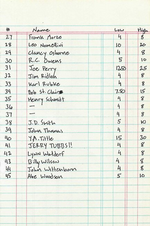 # Name Low High
27 Frank Purse 4 8
28 Leo Nomellini 10 20
29 Clancy Osborne 4 8
30 R.C. Owens 5 10
31 Joe Perry 1250 25
32 Jim Ridlon 4 8
33 Karl Rubke 4 8
34 Bob St. Clair 750 15
35 Henry Schmidt 4 8
36 — 4 8
37 — 4 8
38 J.D. Smith 5 10
39 John Thomas 4 8
40 Y.A. Tittle 15 30
41 JERRY TUBBS! 4 8
42 Lynn Waldorf 4 8
43 Billy Wilson 4 8
44 John Wittenborn 4 8
45 Abe Woodson 5 10